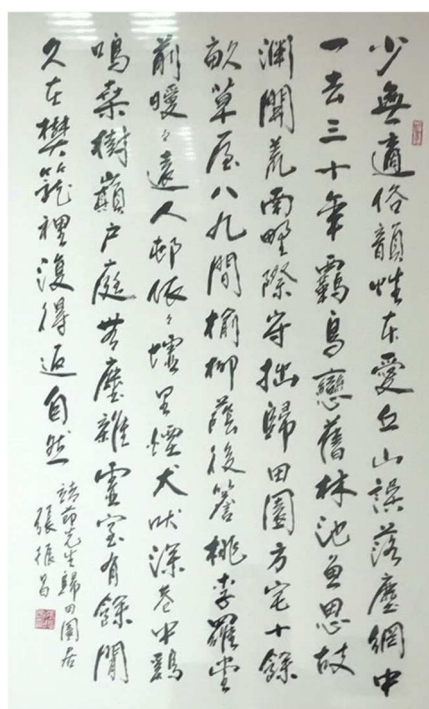 少無適俗韻性本愛丘山誤落塵網中
一去三十年羈鳥戀舊林池魚思故
淵開荒南野際守拙歸田園方宅十餘
畝草屋八九間榆柳蔭後簷桃李羅堂
前曖々遠人邨依々墟里煙犬吠深巷中鷄
鳴桑樹巔戶庭無塵雜虛室有餘閒
久在樊籠裡復得返自然
靖節先生歸田園居
張振昌